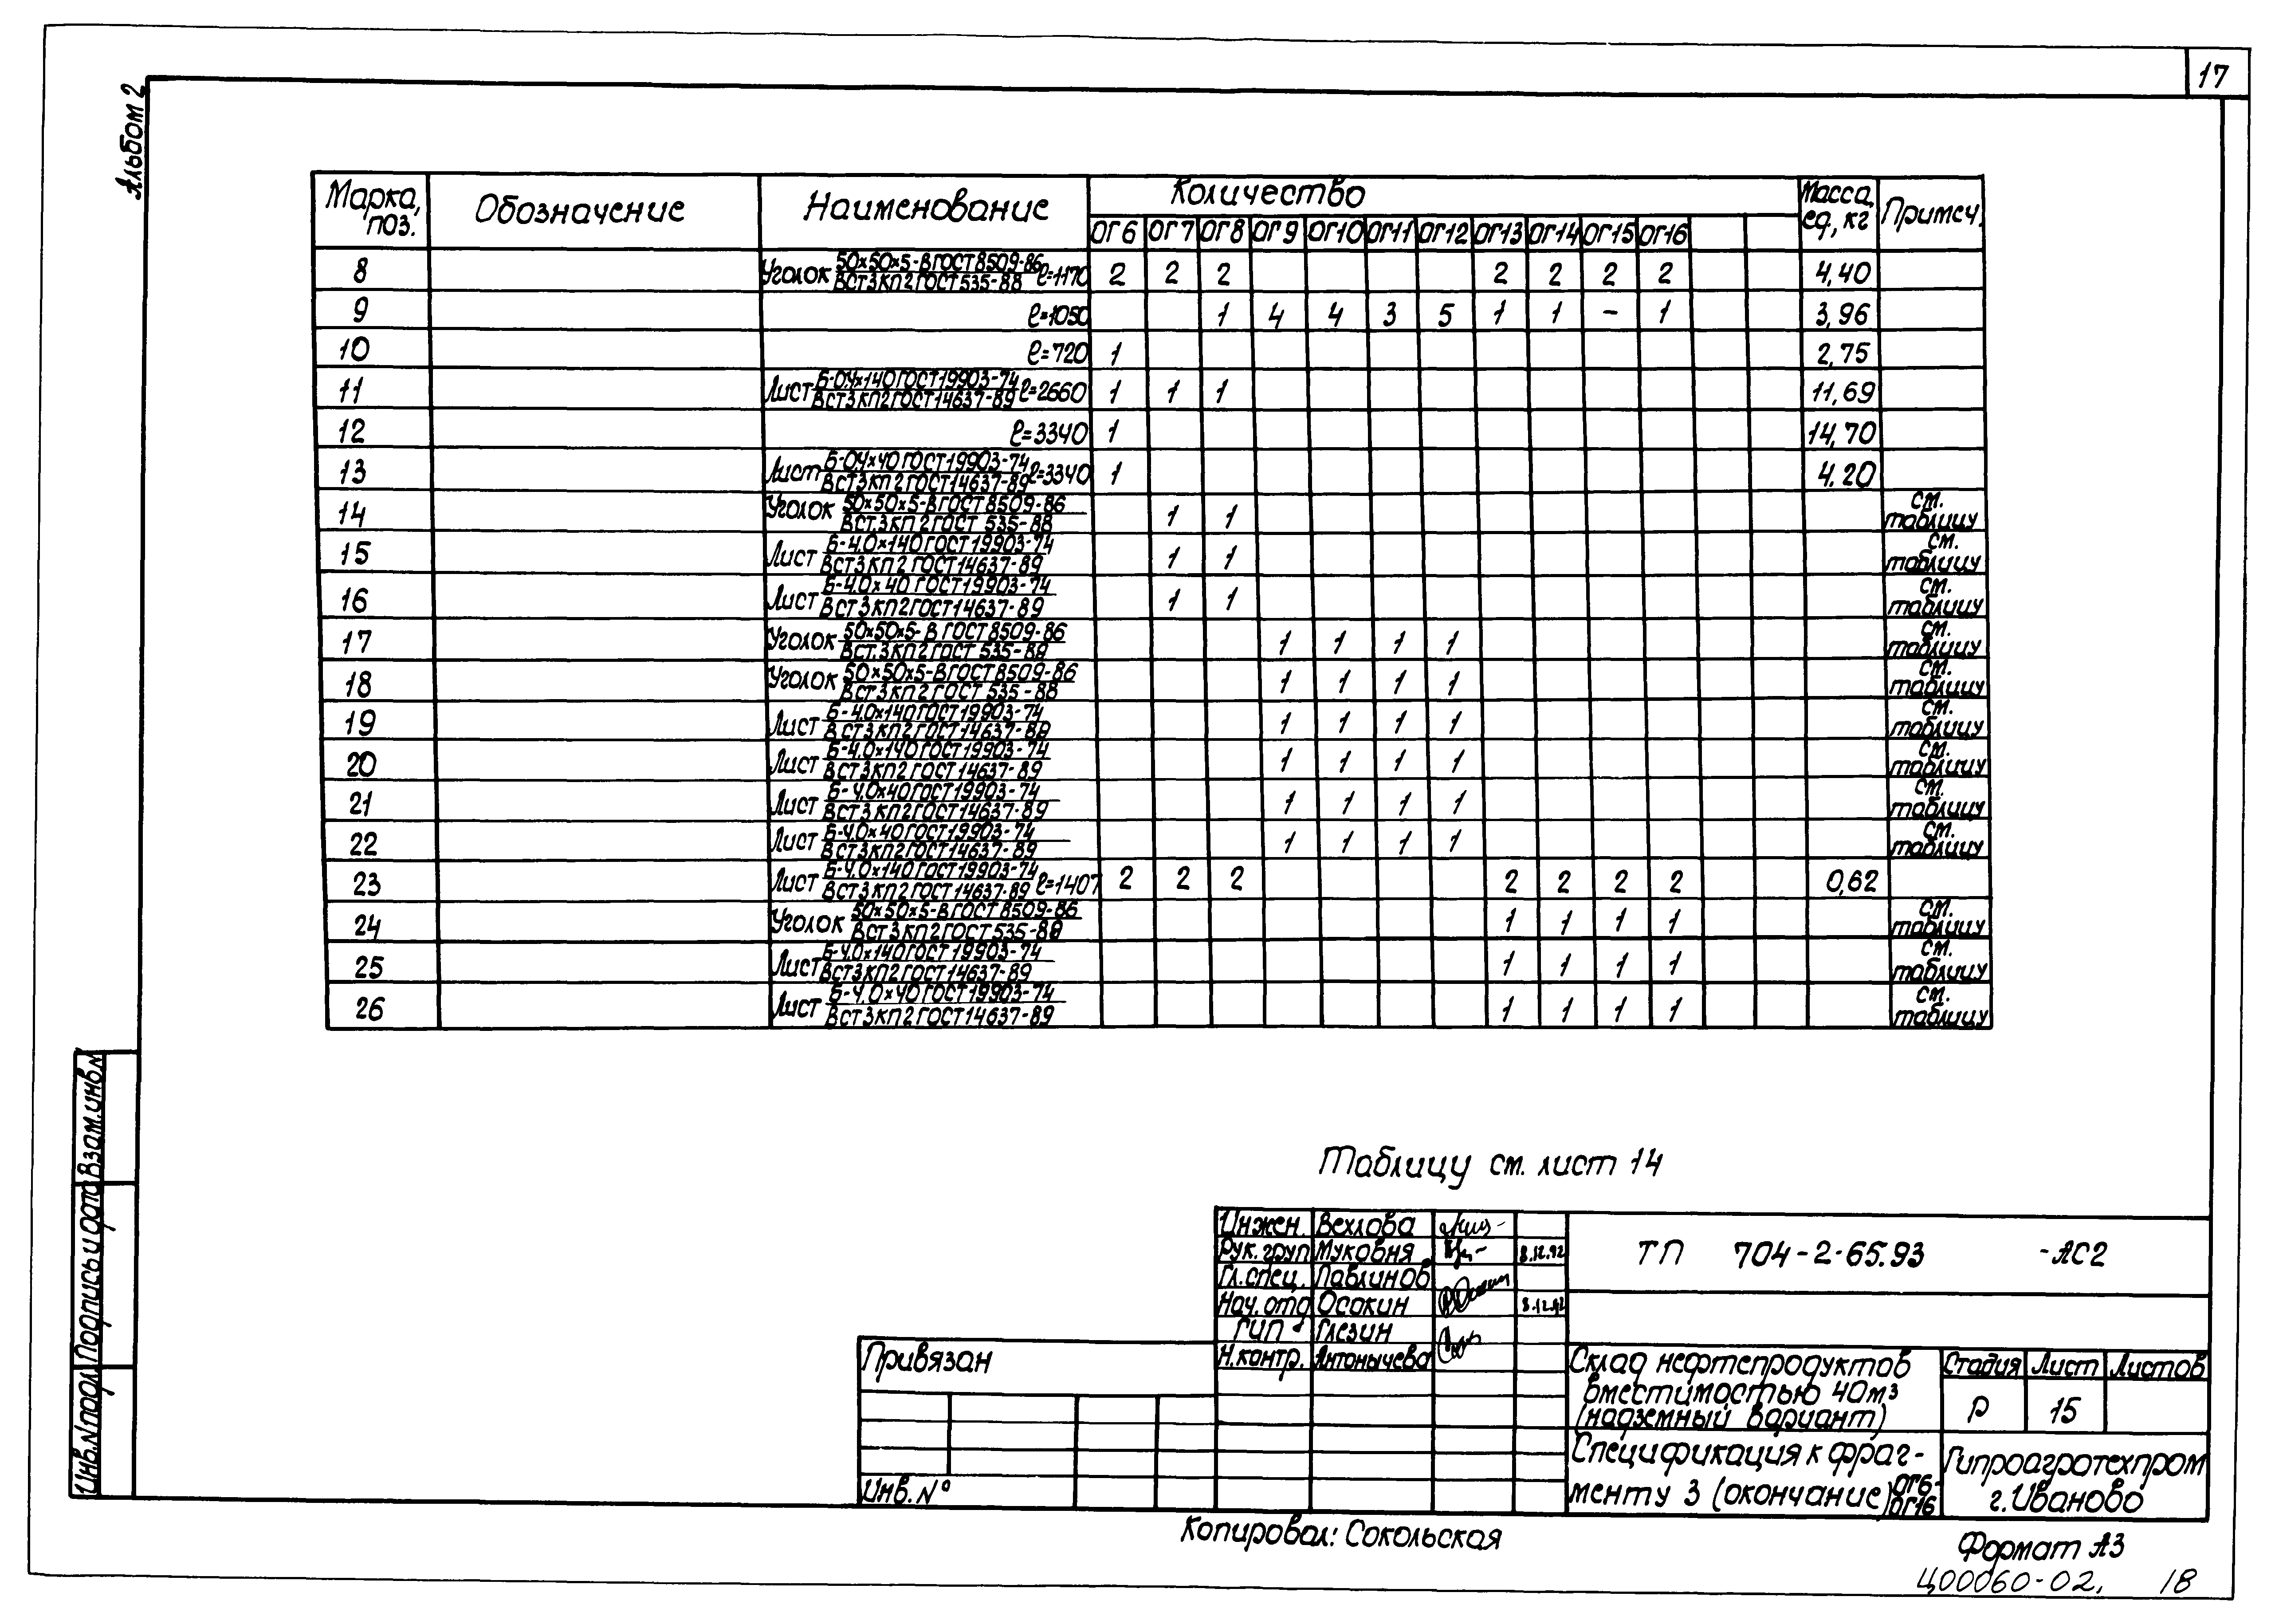 17
Альбом 2
Марка, поз. Обозначение Наименование Количество Масса, ед, кг Примеч.
ОГ6 ОГ7 ОГ8 ОГ9 ОГ10 ОГ11 ОГ12 ОГ13 ОГ14 ОГ15 ОГ16
8 Уголок 50×50×5-В ГОСТ 8509-86 / ВСТ3КП2 ГОСТ 535-88 ℓ=1170 2 2 2 2 2 2 2 4,40
9 ℓ=1050 1 4 4 3 5 1 1 – 1 3,96
10 ℓ=720 1 2,75
11 Лист Б-0,4×140 ГОСТ 19903-74 / ВСТ3КП2 ГОСТ 14637-89 ℓ=2660 1 1 1 11,69
12 ℓ=3340 1 14,70
13 Лист Б-0,4×40 ГОСТ 19903-74 / ВСТ3КП2 ГОСТ 14637-89 ℓ=3340 1 4,20
14 Уголок 50×50×5-В ГОСТ 8509-86 / ВСТ3КП2 ГОСТ 535-88 1 1 см. таблицу
15 Лист Б-4,0×140 ГОСТ 19903-74 / ВСТ3КП2 ГОСТ 14637-89 1 1 см. таблицу
16 Лист Б-4,0×40 ГОСТ 19903-74 / ВСТ3КП2 ГОСТ 14637-89 1 1 см. таблицу
17 Уголок 50×50×5-В ГОСТ 8509-86 / ВСТ3КП2 ГОСТ 535-89 1 1 1 1 см. таблицу
18 Уголок 50×50×5-В ГОСТ 8509-86 / ВСТ3КП2 ГОСТ 535-88 1 1 1 1 см. таблицу
19 Лист Б-4,0×140 ГОСТ 19903-74 / ВСТ3КП2 ГОСТ 14637-89 1 1 1 1 см. таблицу
20 Лист Б-4,0×140 ГОСТ 19903-74 / ВСТ3КП2 ГОСТ 14637-89 1 1 1 1 см. таблицу
21 Лист Б-4,0×40 ГОСТ 19903-74 / ВСТ3КП2 ГОСТ 14637-89 1 1 1 1 см. таблицу
22 Лист Б-4,0×40 ГОСТ 19903-74 / ВСТ3КП2 ГОСТ 14637-89 1 1 1 1 см. таблицу
23 Лист Б-4,0×140 ГОСТ 19903-74 / ВСТ3КП2 ГОСТ 14637-89 ℓ=1407 2 2 2 2 2 2 2 0,62
24 Уголок 50×50×5-В ГОСТ 8509-86 / ВСТ3КП2 ГОСТ 535-88 1 1 1 1 см. таблицу
25 Лист Б-4,0×140 ГОСТ 19903-74 / ВСТ3КП2 ГОСТ 14637-89 1 1 1 1 см. таблицу
26 Лист Б-4,0×40 ГОСТ 19903-74 / ВСТ3КП2 ГОСТ 14637-89 1 1 1 1 см. таблицу
Таблицу см. лист 14
Инжен. Вехлова
Рук. груп Муковня 8.12.92
Гл. спец. Павлинов
Нач. отд Осокин 8.12.92
ГИП Глезин
Н.контр. Антонычева
ТП 704-2-65.93 -АС2
Привязан
Инв. №
Склад нефтепродуктов
вместимостью 40м³
(надземный вариант)
Стадия Лист Листов
Р 15
Спецификация к фраг-
менту 3 (окончание) ОГ6-ОГ16
Гипроагротехпром
г. Иваново
Взам.инв.N
Подпись и дата
Инв.N подл.
Копировал: Сокольская
Формат А3
Ц00060-02, 18